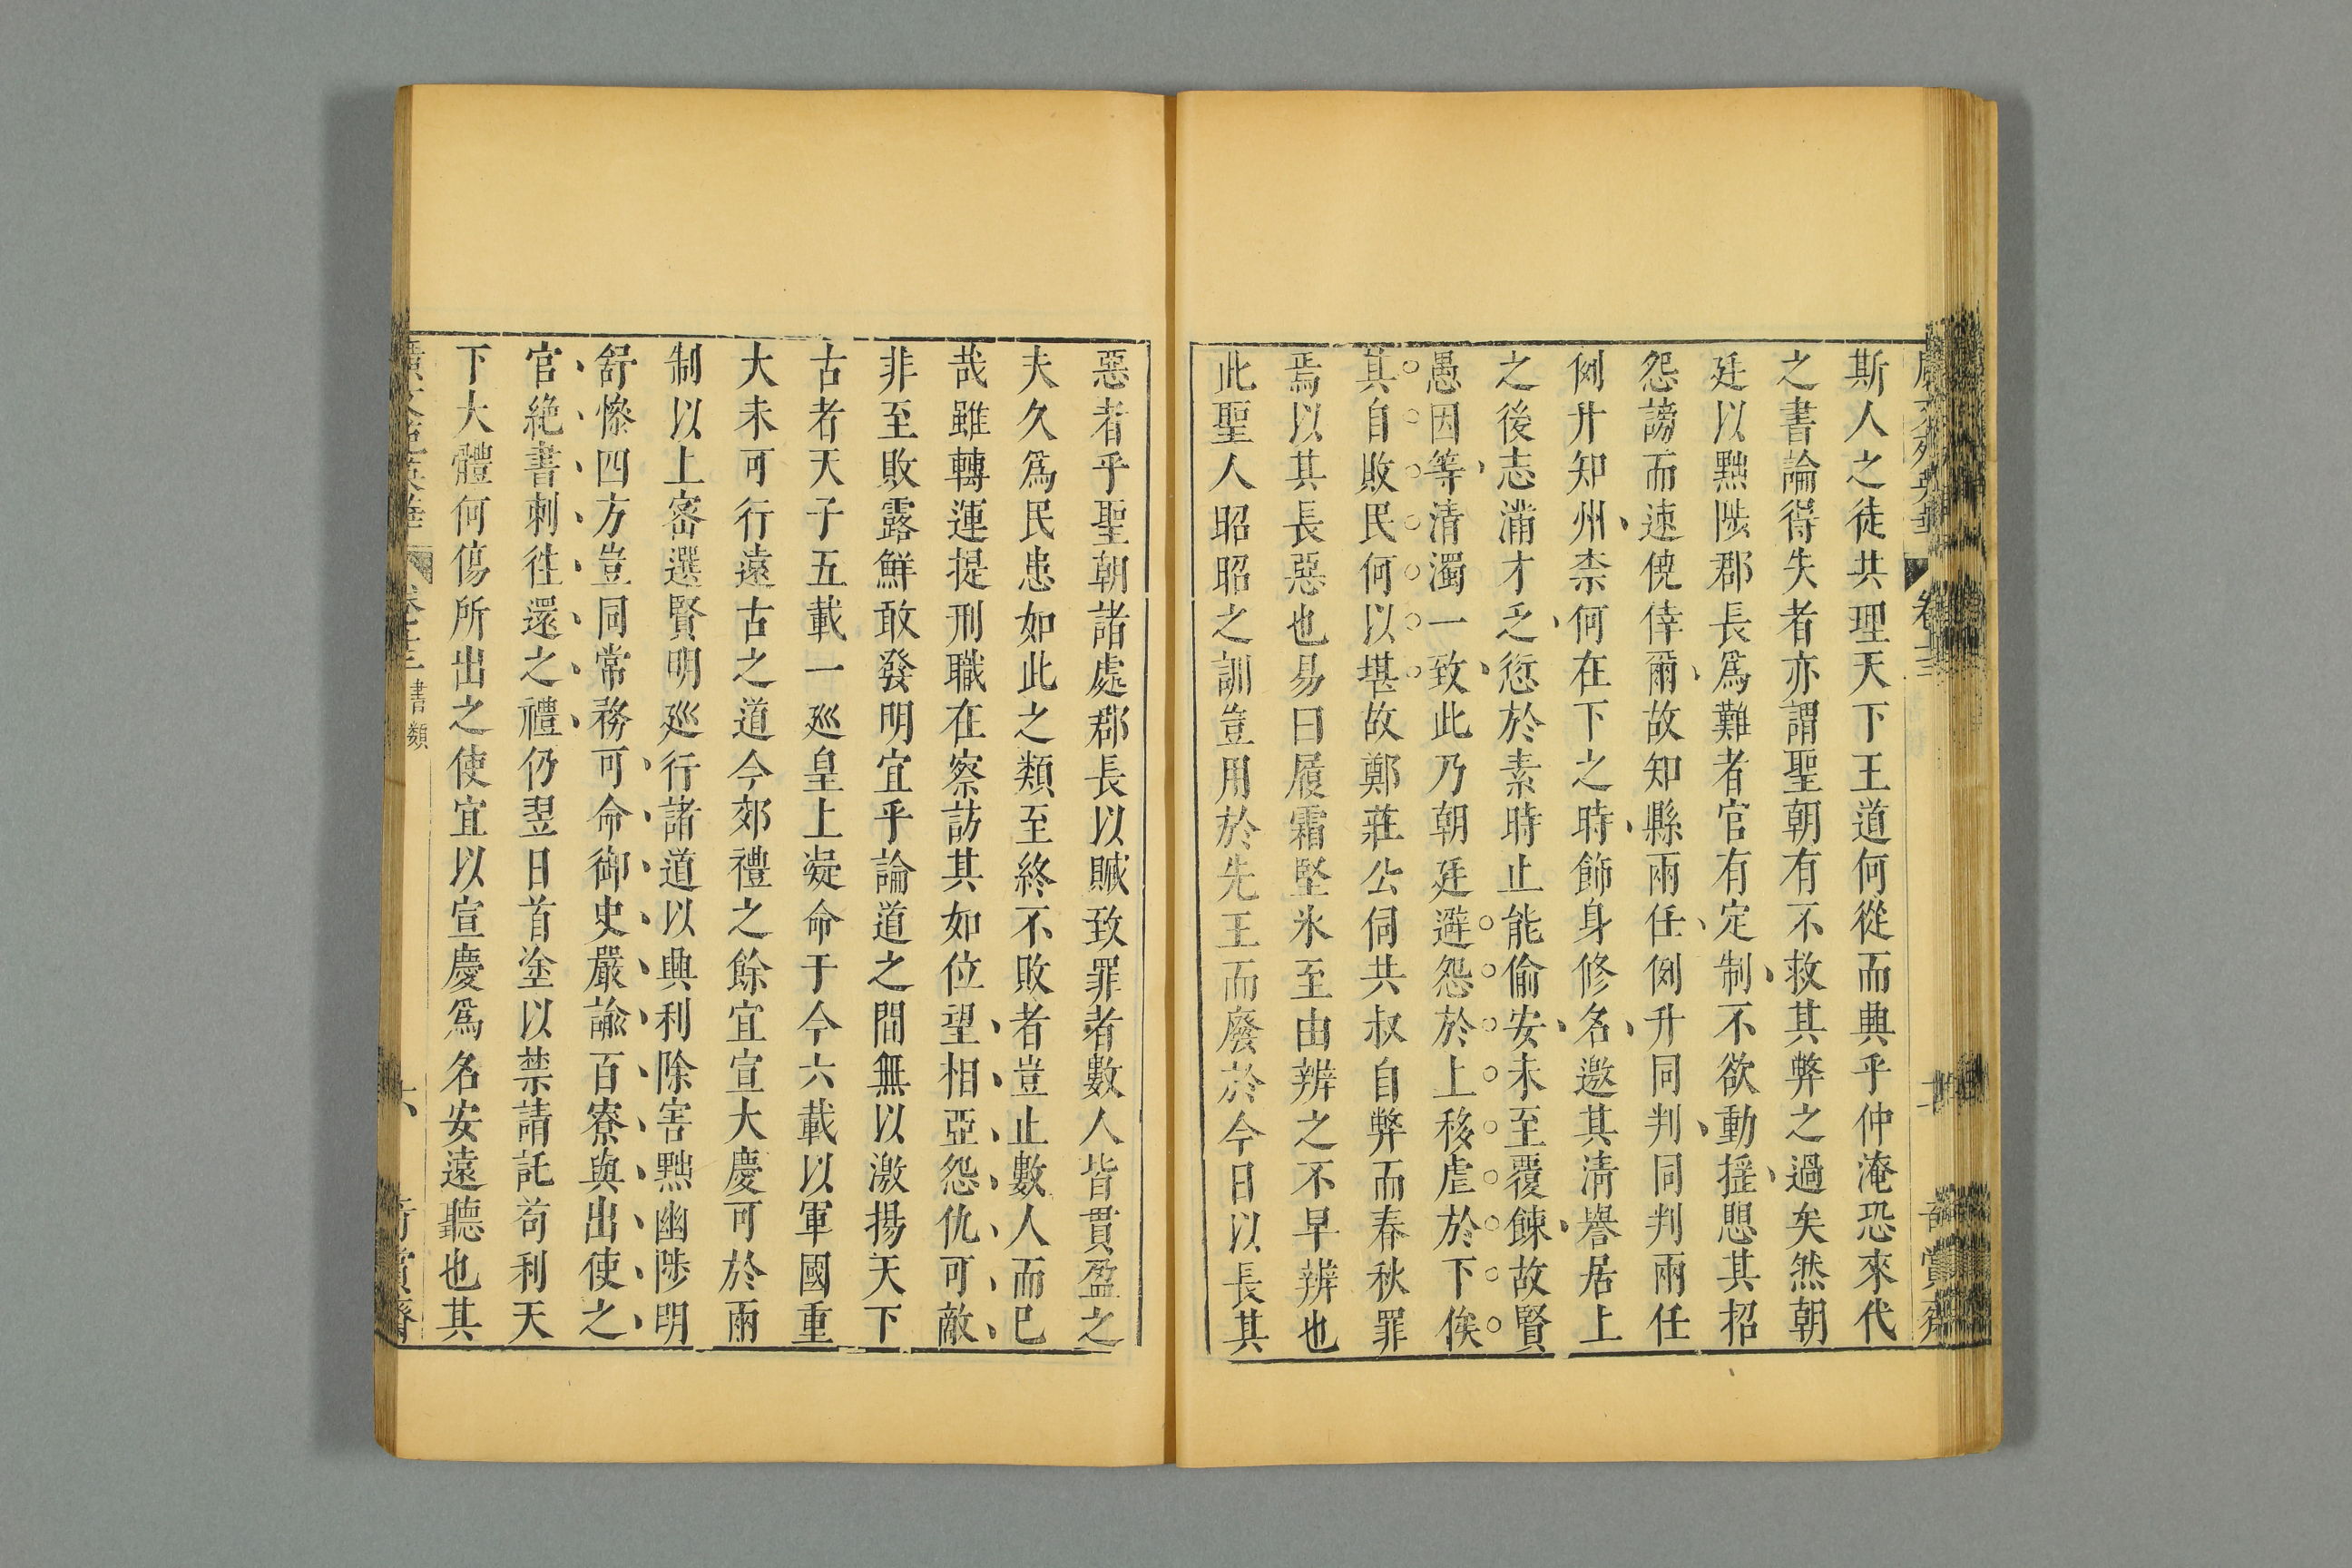 斯人之徒共理天下王道何從而興乎仲淹恐來代
之書論得失者亦謂聖朝有不救其弊之過矣然朝
廷以黜陟郡長爲難者官有定制不欲動揺思其招
怨謗而速僥倖爾故知縣兩任例升同判同判兩任
例升知州柰何在下之時飾身修名邀其淸譽居上
之後志滿才乏愆於素時止能偷安未至覆餗故賢
愚因等清濁一致此乃朝廷避怨於上移虐於下俟
其自敗民何以堪故鄭莊公伺共叔自弊而春秋罪
焉以其長惡也易曰履霜堅氷至由辨之不早辨也
此聖人昭昭之訓豈用於先王而廢於今日以長其
惡者乎聖朝諸處郡長以贓致罪者數人皆貫盈之
夫久爲民患如此之類至終不敗者豈止數人而已
哉雖轉運提刑職在察訪其如位望相亞怨仇可敵
非至敗露鮮敢發明宜乎論道之間無以激揚天下
古者天子五載一廵皇上凝命于今六載以軍國重
大未可行遠古之道今郊禮之餘宜宣大慶可於兩
制以上密選賢明廵行諸道以興利除害黜幽陟明
舒慘四方豈同常務可命御史嚴諭百寮與出使之
官絶書刺徃還之禮仍翌日首塗以禁請託苟利天
下大體何傷所出之使宜以宣慶爲名安遠聽也其
書類